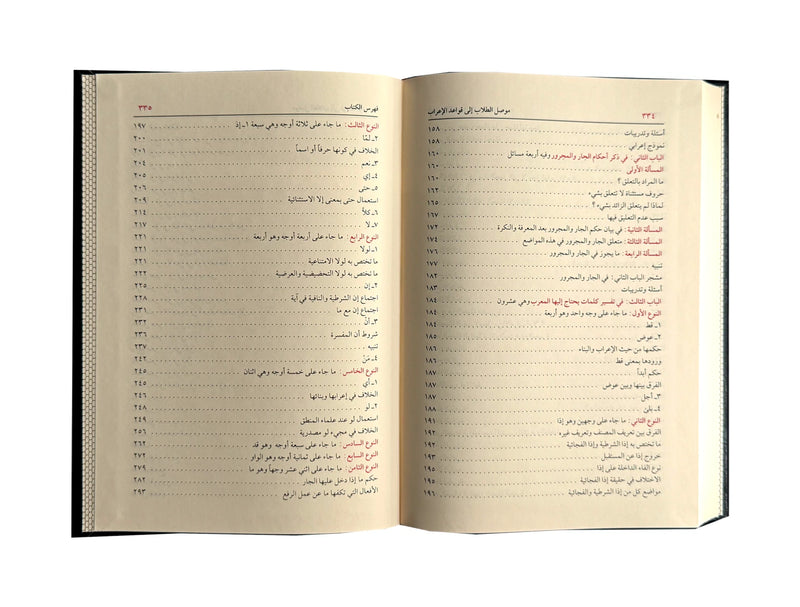 موصل الطلاب إلى قواعد الإعراب ٣٣٤
أسئلة وتدريبات ١٥٨
نموذج إعرابي
الباب الثاني: في ذكر أحكام الجار والمجرور وفيه أربعة مسائل ١٦٠
المسألة الأولى ١٦٠
ما المراد بالتعلق؟
حروف مستثناة لا تتعلق بشيء ١٦٢
لماذا لم يتعلق الزائد بشيء؟ ١٦٥
سبب عدم التعليق فيها ١٦٧
المسألة الثانية: في بيان حكم الجار والمجرور بعد المعرفة والنكرة ١٧٢
المسألة الثالثة: متعلق الجار والمجرور في هذه المواضع ١٧٤
المسألة الرابعة: ما يجوز في الجار والمجرور ١٧٦
تنبيه ١٧٧
مشجر الباب الثاني: في الجار والمجرور ١٨٢
أسئلة وتدريبات ١٨٣
الباب الثالث: في تفسير كلمات يحتاج إليها المعرب وهي عشرون ١٨٤
النوع الأول: ما جاء على وجه واحد وهو أربعة ١٨٤
١ـ قط ١٨٤
٢ـ عوض ١٨٥
حكمها من حيث الإعراب والبناء ١٨٦
ورودها بمعنى قط ١٨٦
حكم أبداً ١٨٧
الفرق بينها وبين عوض ١٨٧
٣ـ أجل ١٨٧
٤ـ بلى ١٨٨
النوع الثاني: ما جاء على وجهين وهو إذا ١٩١
الفرق بين تعريف المصنف وتعريف غيره ١٩٢
ما تختص به إذا الشرطية وإذا الفجائية ١٩٢
خروج إذا عن المستقبل ١٩٣
نوع الفاء الداخلة على إذا ١٩٥
الاختلاف في حقيقة إذا الفجائية ١٩٥
مواضع كل من إذا الشرطية والفجائية ١٩٦
فهرس الكتاب ٣٣٥
النوع الثالث: ما جاء على ثلاثة أوجه وهي سبعة ١ـ إذ ١٩٧
٢ـ لمّا ٢٠٠
الخلاف في كونها حرفاً أو اسماً ٢٠١
٣ـ نعم ٢٠٤
٤ـ إي ٢٠٥
٥ـ حتى ٢٠٦
استعمال حتى بمعنى إلا الاستثنائية ٢٠٩
٦ـ كلاّ ٢١٤
٧ـ لا ٢١٧
النوع الرابع: ما جاء على أربعة أوجه وهو أربعة ٢٢١
١ـ لولا ٢٢١
ما تختص به لولا الامتناعية ٢٢١
ما تختص به لولا التحضيضية والعرضية ٢٢٢
٢ـ إن ٢٢٥
اجتماع إن الشرطية والنافية في آية ٢٢٨
اجتماع إن مع ما ٢٣١
٣ـ أنْ ٢٣٢
شروط أن المفسرة ٢٣٦
تنبيه ٢٣٧
٤ـ مَنْ ٢٤٢
النوع الخامس: ما جاء على خمسة أوجه وهي اثنان ٢٤٥
١ـ أي ٢٤٥
الخلاف في إعرابها وبنائها ٢٤٦
٢ـ لو ٢٤٨
استعمال لو عند علماء المنطق ٢٤٩
الخلاف في مجيء لو مصدرية ٢٥٦
النوع السادس: ما جاء على سبعة أوجه وهو قد ٢٦٢
النوع السابع: ما جاء على ثمانية أوجه وهو الواو ٢٧٢
النوع الثامن: ما جاء على اثني عشر وجهاً وهو ما ٢٧٩
حكم ما إذا دخل عليها الجار ٢٨٢
الأفعال التي تكفها ما عن عمل الرفع ٢٩٣